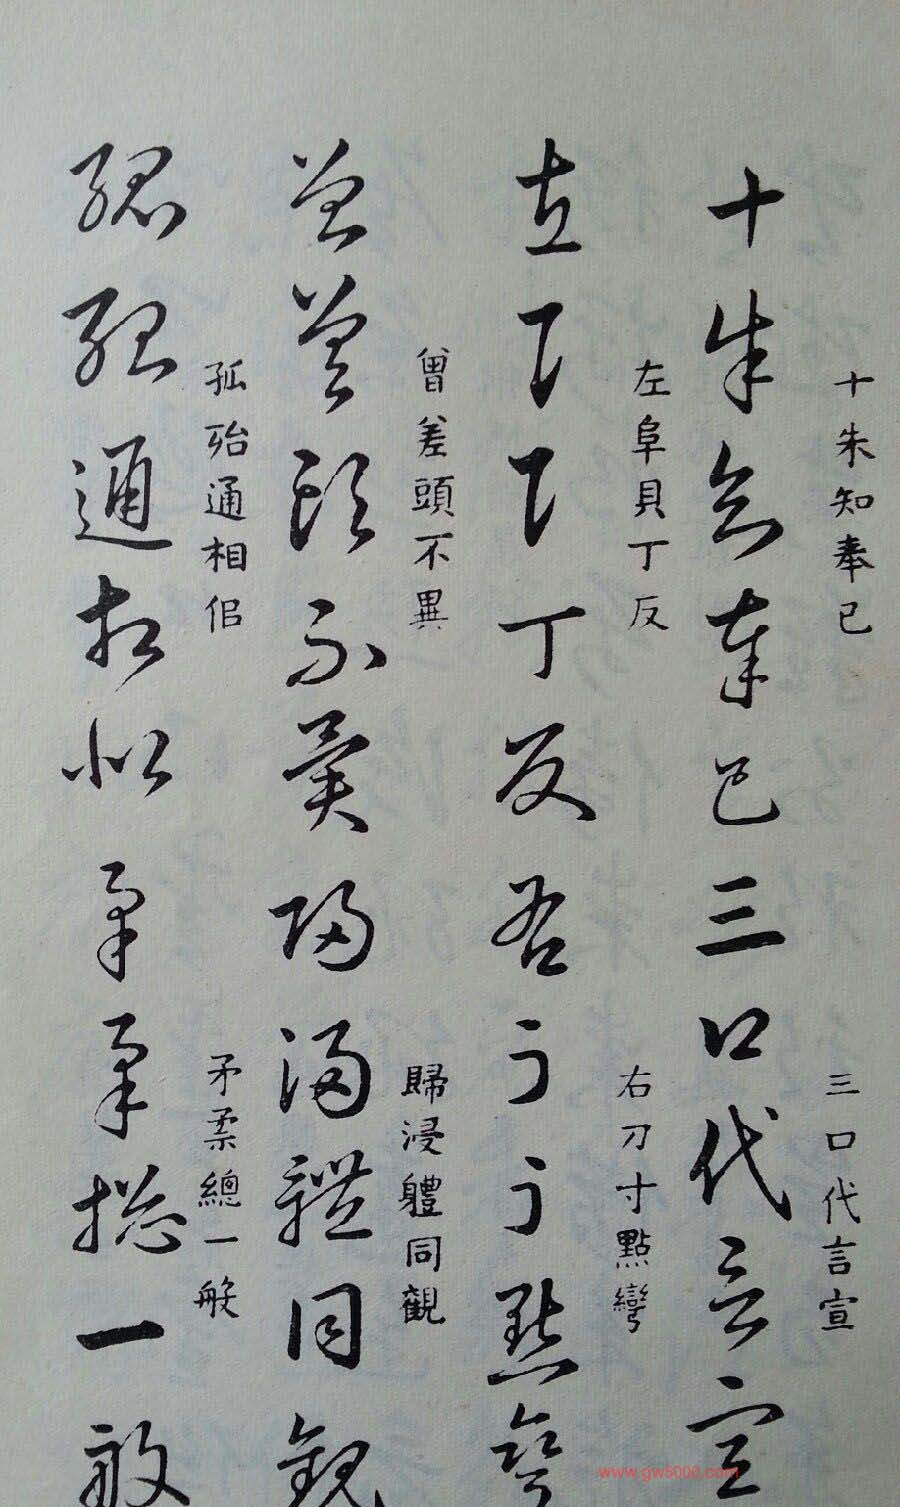 十朱知奉已 三口代言宣
十朱知奉已三口代言宣
左阜貝丁反 右刀寸點彎
左阜貝丁反右刀寸點彎
曾差頭不異 歸浸體同觀
曾差頭不異歸浸體同觀
孤殆通相佀 矛柔總一般
孤殆通相似矛柔總一般
www.gw5000.com